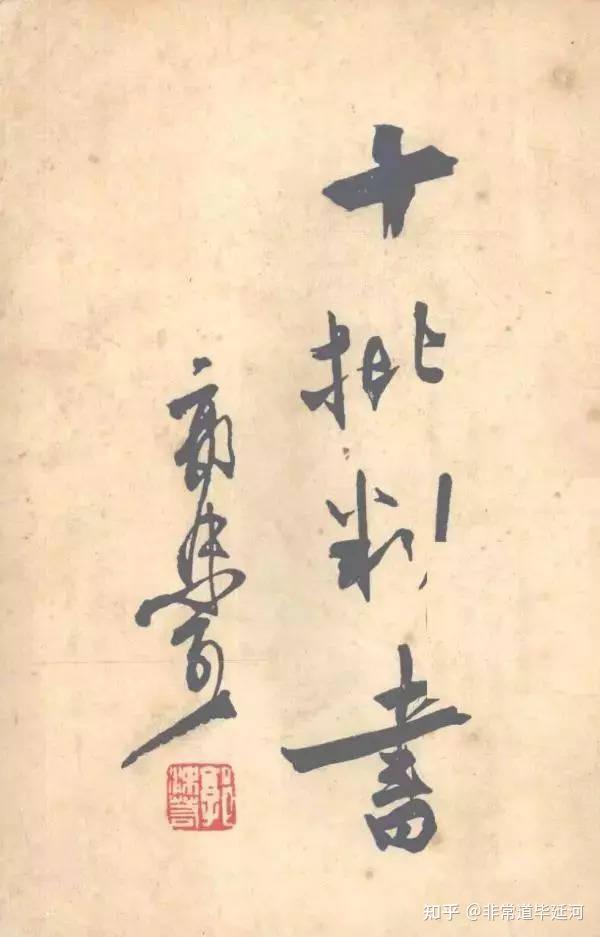 十批判書
郭沫若
郭沫若
知乎 @非常道毕延河